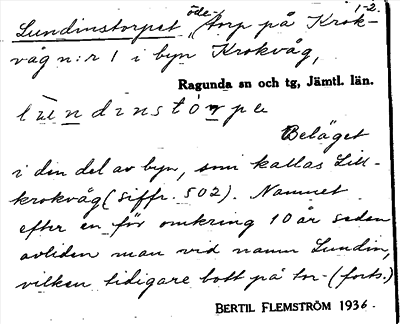 1-2.
Lundinstorpet, öde-torp på Krok-
våg n:r 1 i byn Krokvåg,
Ragunda sn och tg, Jämtl. län.
Beläget
i den del av byn, som kallas Lill-
krokvåg (siffr. 502). Namnet
efter en för omkring 10 år sedan
avliden man vid namn Lundin,
vilken tidigare bott på tor- (forts.)
BERTIL FLEMSTRÖM 1936.